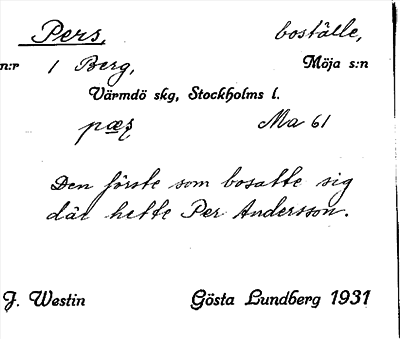 Pers, boställe,
n:r 1 Berg, Möja s:n
Värmdö skg, Stockholms l.
pæṣ Ma 61
Den förste som bosatte sig
där hette Per Andersson.
J. Westin Gösta Lundberg 1931